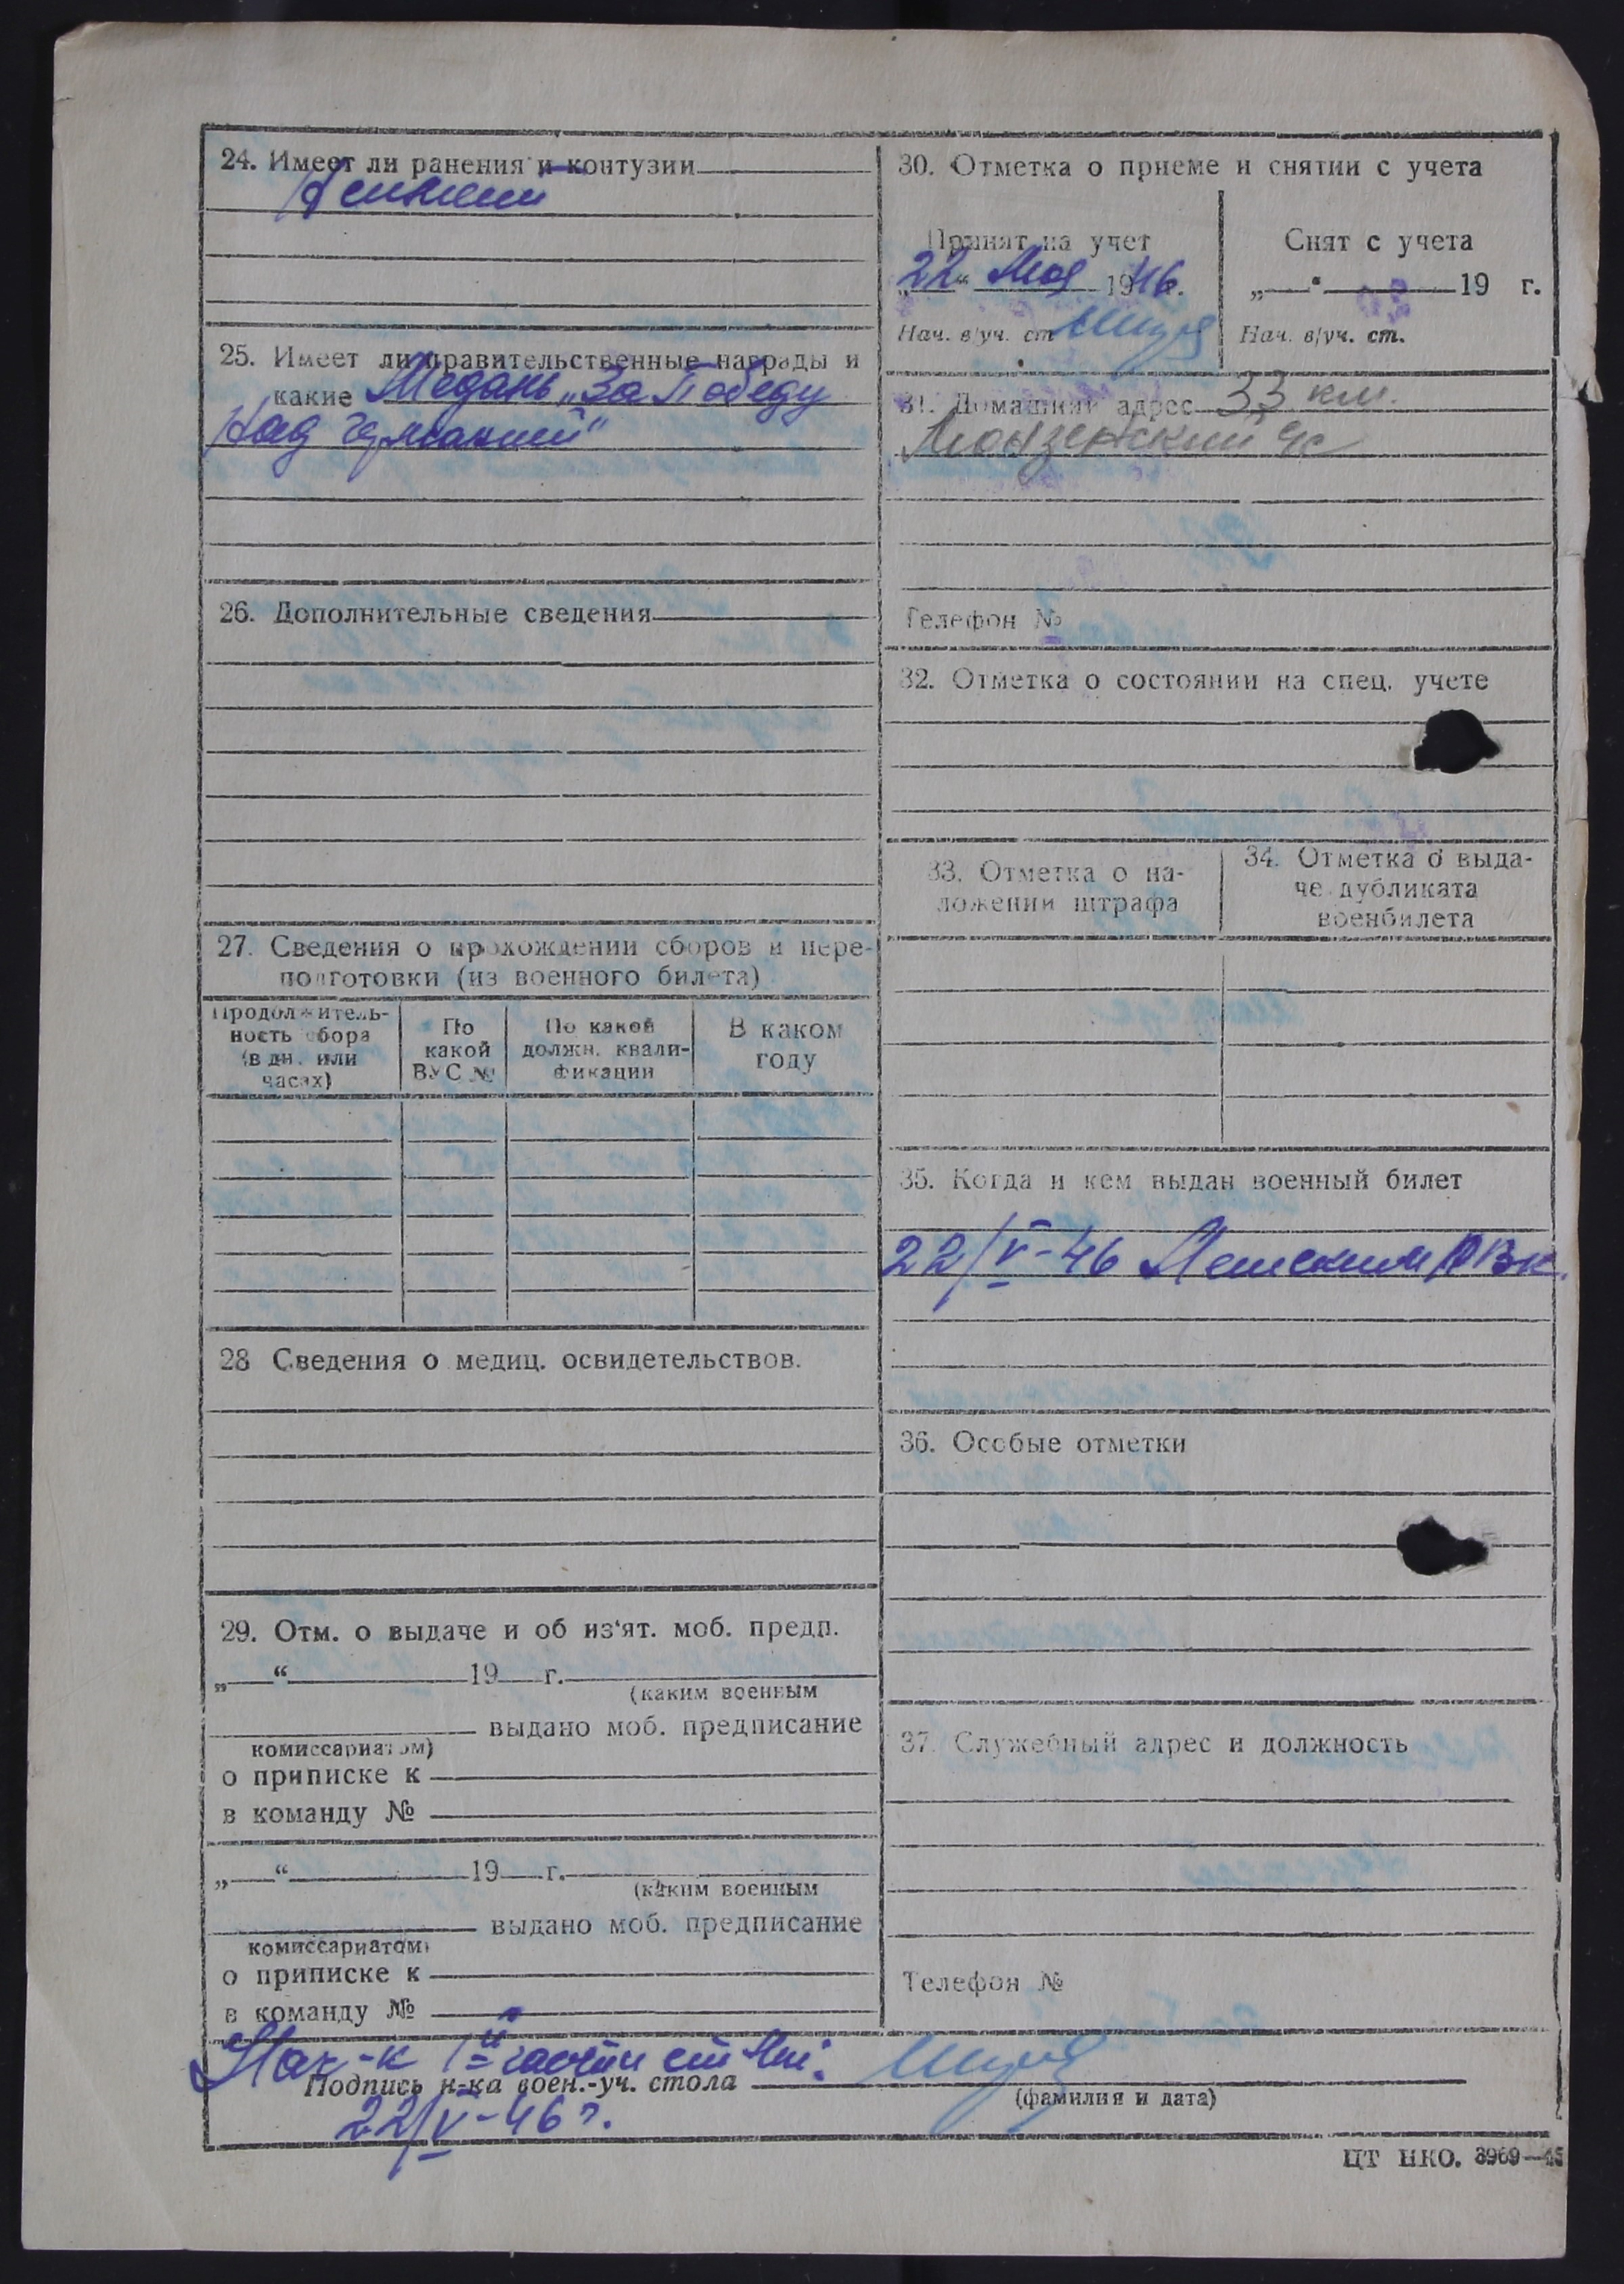 24. Имеет ли ранения и контузии
Не имеет
25. Имеет ли правительственные награды и
какие Медаль „За Победу
над германией"
26. Дополнительные сведения
27. Сведения о прохождении сборов и пере-
подготовки (из военного билета)
Продолжитель-
ность сбора
(в дн. или
часах)
По
какой
ВУС №
По какой
должн. квали-
фикации
В каком
году
28 Сведения о медиц. освидетельствов.
29. Отм. о выдаче и об из‘ят. моб. предп.
„ “ 19 г.
(каким военным
выдано моб. предписание
комиссариатом)
о приписке к
в команду №
„ “ 19 г.
(каким военным
выдано моб. предписание
комиссариатом)
о приписке к
в команду №
30. Отметка о приеме и снятии с учета
Принят на учет
„22“ Мая 1946 г.
Нач. в/уч. ст.
Снят с учета
„ “ 19 г.
Нач. в/уч. ст.
31. Домашний адрес 33 км.
Монзенский
Телефон №
32. Отметка о состоянии на спец. учете
33. Отметка о на-
ложении штрафа
34. Отметка о выда-
че дубликата
военбилета
35. Когда и кем выдан военный билет
22/V-46 РВК.
36. Особые отметки
37. Служебный адрес и должность
Телефон №
Нач-к части
Подпись н-ка воен.-уч. стола
(фамилия и дата)
22/V-46 г.
ЦТ НКО. 3969—45